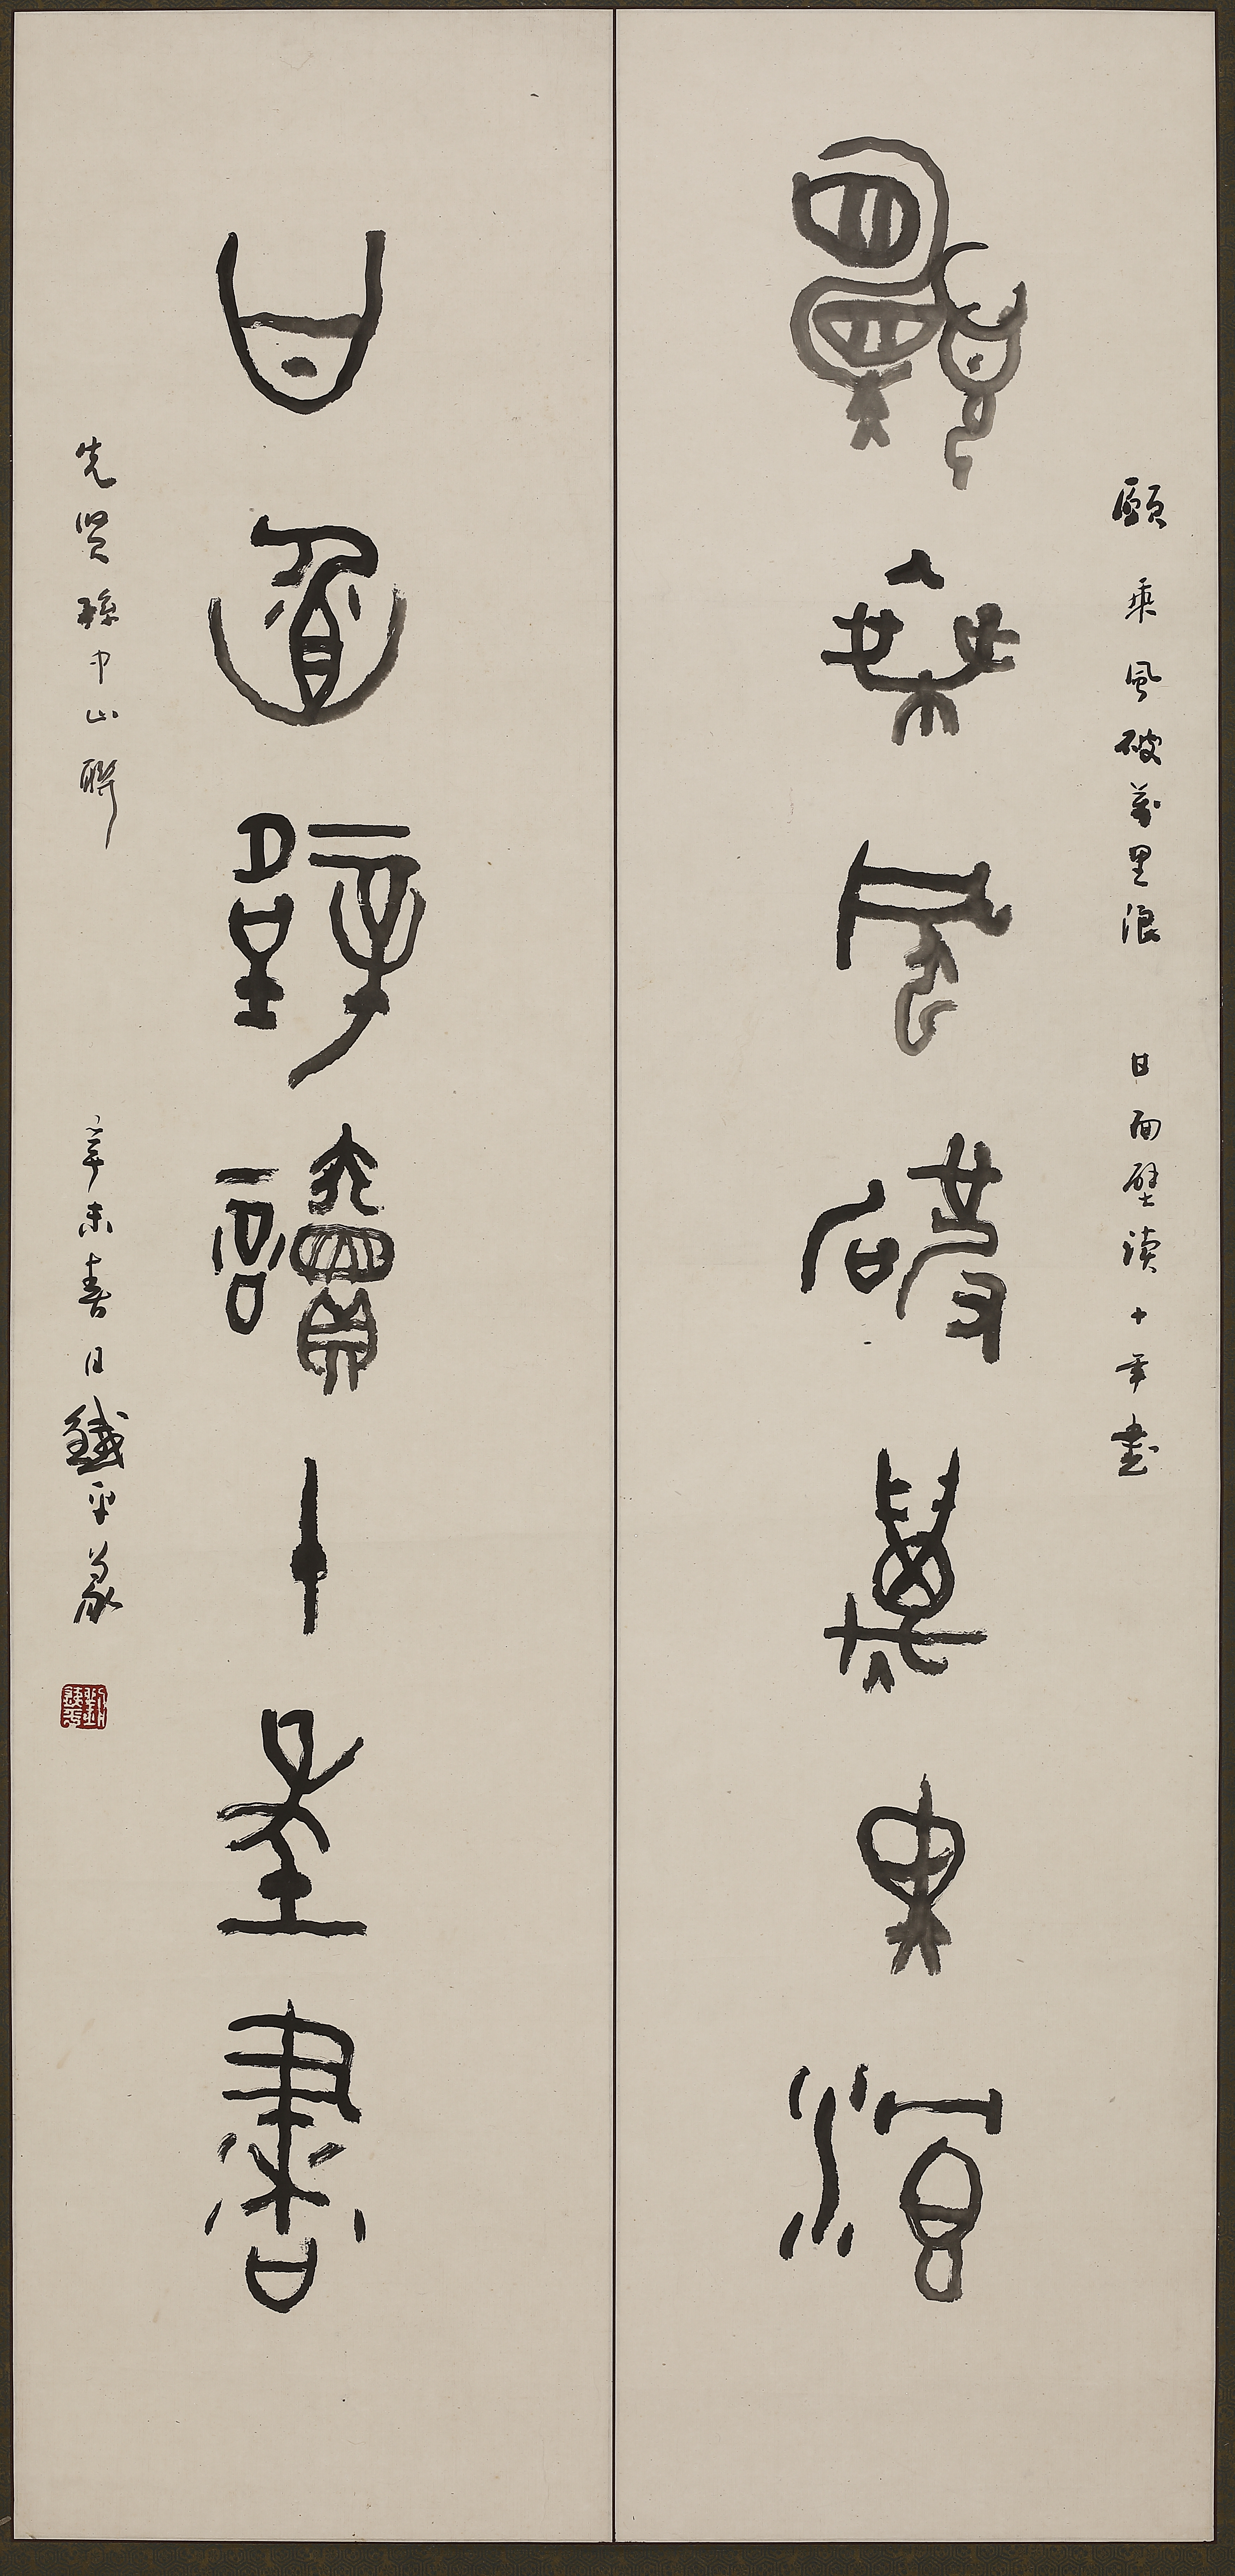 願乘風破萬里浪 甘面壁读十年書
願乘風破萬里浪
甘面壁讀十年書
先贤孫中山聯 辛未春日鐵平篆
劉鐵平